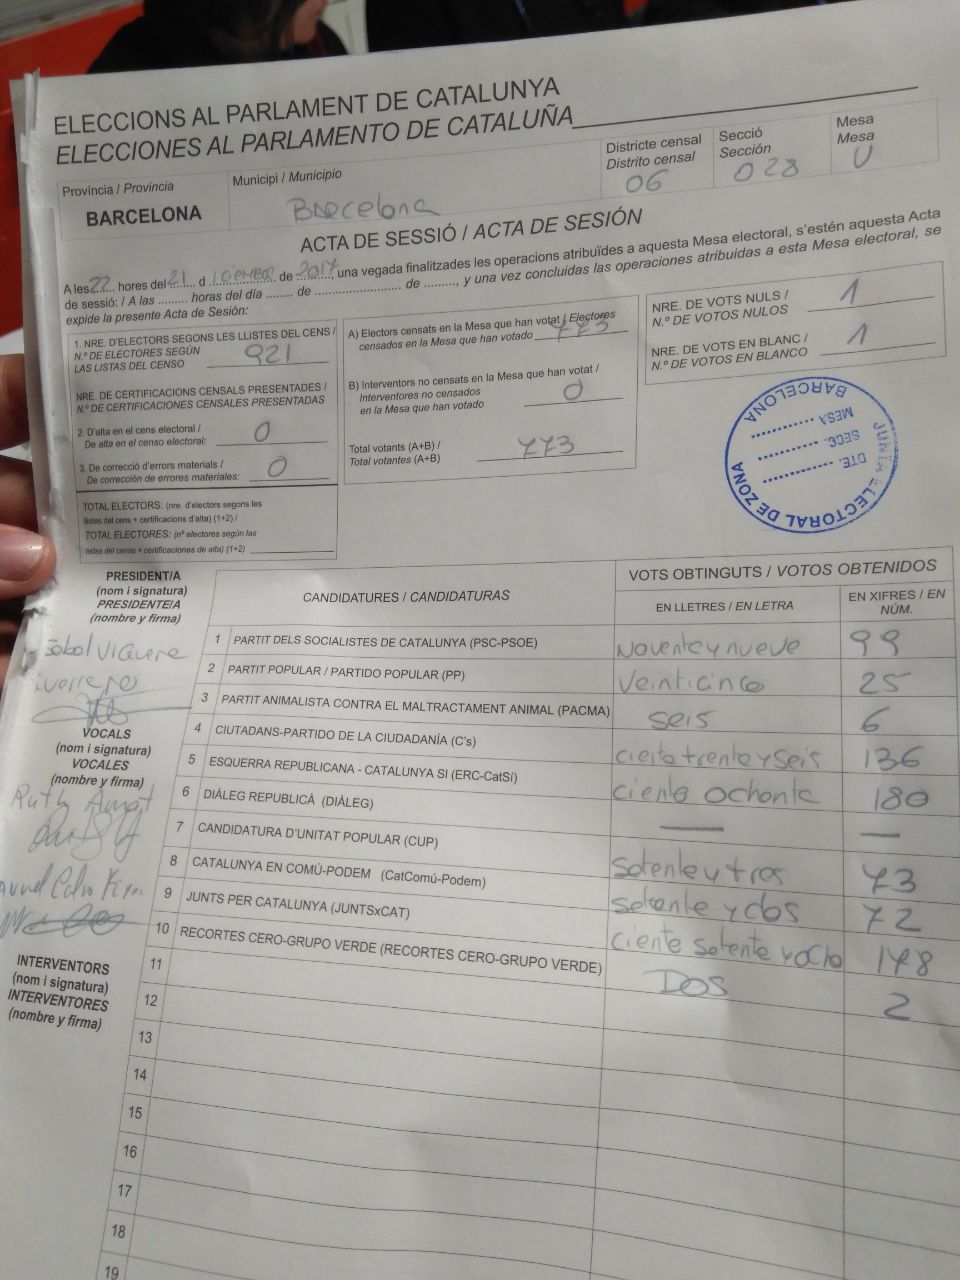 ELECCIONS AL PARLAMENT DE CATALUNYA
ELECCIONES AL PARLAMENTO DE CATALUÑA
Província / Provincia
BARCELONA
Municipi / Municipio
Barcelona
Districte censal
Distrito censal
06
Secció
Sección
028
Mesa
Mesa
U
ACTA DE SESSIÓ / ACTA DE SESIÓN
A les 22 hores del 21 d iciembre de 2017, una vegada finalitzades les operacions atribuïdes a aquesta Mesa electoral, s'estén aquesta Acta
de sessió: / A las ......... horas del día ........ de ......................... de ........., y una vez concluidas las operaciones atribuidas a esta Mesa electoral, se
expide la presente Acta de Sesión:
1. NRE. D'ELECTORS SEGONS LES LLISTES DEL CENS /
N.º DE ELECTORES SEGÚN
LAS LISTAS DEL CENSO 921
NRE. DE CERTIFICACIONS CENSALS PRESENTADES /
N.º DE CERTIFICACIONES CENSALES PRESENTADAS
2. D'alta en el cens electoral /
De alta en el censo electoral: 0
3. De correcció d'errors materials /
De corrección de errores materiales: 0
TOTAL ELECTORS: (nre. d'electors segons les
llistes del cens + certificacions d'alta) (1+2) /
TOTAL ELECTORES: (nº electores según las
listas del censo + certificaciones de alta) (1+2)
A) Electors censats en la Mesa que han votat / Electores
censados en la Mesa que han votado 773
B) Interventors no censats en la Mesa que han votat /
Interventores no censados
en la Mesa que han votado 0
Total votants (A+B) /
Total votantes (A+B) 773
NRE. DE VOTS NULS /
N.º DE VOTOS NULOS 1
NRE. DE VOTS EN BLANC /
N.º DE VOTOS EN BLANCO 1
JUNTA ELECTORAL DE ZONA
BARCELONA
DTE.
SECC.
MESA
PRESIDENT/A
(nom i signatura)
PRESIDENTE/A
(nombre y firma)
VOCALS
(nom i signatura)
VOCALES
(nombre y firma)
Ruth
INTERVENTORS
(nom i signatura)
INTERVENTORES
(nombre y firma)
CANDIDATURES / CANDIDATURAS
VOTS OBTINGUTS / VOTOS OBTENIDOS
EN LLETRES / EN LETRA
EN XIFRES / EN NÚM.
1 PARTIT DELS SOCIALISTES DE CATALUNYA (PSC-PSOE) Noventa y nueve 99
2 PARTIT POPULAR / PARTIDO POPULAR (PP) Veinticinco 25
3 PARTIT ANIMALISTA CONTRA EL MALTRACTAMENT ANIMAL (PACMA) seis 6
4 CIUTADANS-PARTIDO DE LA CIUDADANÍA (C's) ciento trenta y seis 136
5 ESQUERRA REPUBLICANA - CATALUNYA SI (ERC-CatSí) ciento ochenta 180
6 DIÀLEG REPUBLICÀ (DIÀLEG) — —
7 CANDIDATURA D'UNITAT POPULAR (CUP) setenta y tres 73
8 CATALUNYA EN COMÚ-PODEM (CatComú-Podem) setenta y dos 72
9 JUNTS PER CATALUNYA (JUNTSxCAT) ciento setenta y ocho 178
10 RECORTES CERO-GRUPO VERDE (RECORTES CERO-GRUPO VERDE) DOS 2
11
12
13
14
15
16
17
18
19